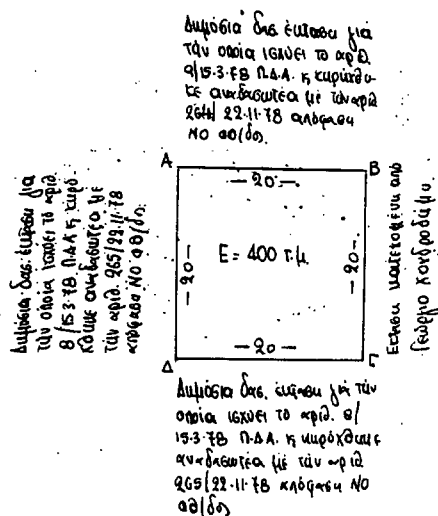 Δημόσια δας. έκταση για
την οποία ισχύει το αριθ.
9/15.3.78 Π.Δ.Α. κ κηρύχθη-
κε αναδασωτέα με την αριθ
264/22.11.78 απόφαση
ΝΟ ΦΘ/δος.
Α
Β
— 20 —
Δημόσια δας. έκταση για
την οποία ισχύει το αριθ.
8/15.3.78 Π.Δ.Α κ κηρύ-
χθηκε αναδασωτέα με
την αριθ. 265/22.11.78
απόφαση ΝΟ ΦΘ/δος.
— 20 —
Ε = 400 τ.μ.
— 20 —
Εκταση κατεχομένη από
Γεώργιο Χονδροδήμο
— 20 —
Δ
Γ
Δημόσια δας. έκταση για την
οποία ισχύει το αριθ. 8/
15.3.78 Π.Δ.Α. κ κηρύχθηκε
αναδασωτέα με την αριθ
265/22.11.78 απόφαση ΝΟ
ΦΘ/δος